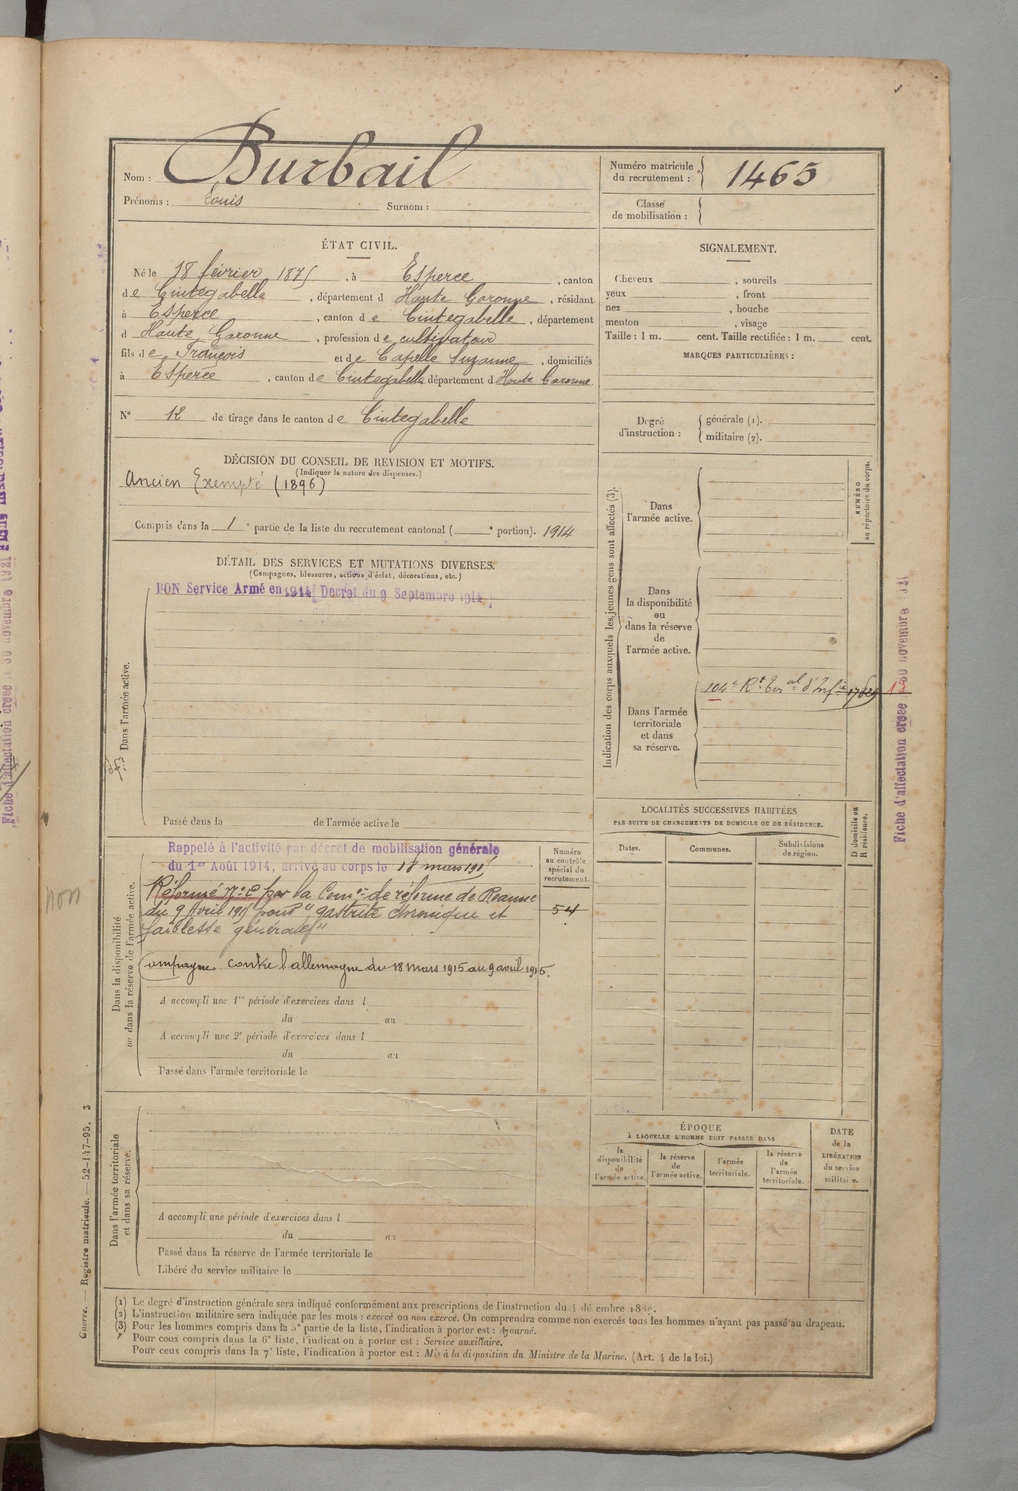 Nom : Burbail
Prénoms : Louis Surnom :
Numéro matricule du recrutement : 1465
Classe de mobilisation :
ÉTAT CIVIL.
Né le 18 février 1875, à Esperce, canton
de Cintegabelle, département d Haute Garonne, résidant
à Esperce, canton de Cintegabelle, département
d Haute Garonne, profession de cultivateur
fils de François et de Capelle Suzanne, domiciliés
à Esperce, canton de Cintegabelle département d Haute Garonne
N° 12 de tirage dans le canton de Cintegabelle
SIGNALEMENT.
Cheveux , sourcils
yeux , front
nez , bouche
menton , visage
Taille : 1 m. cent. Taille rectifiée : 1 m. cent.
MARQUES PARTICULIÈRES :
Degré d'instruction : générale (1).
militaire (2).
DÉCISION DU CONSEIL DE REVISION ET MOTIFS.
(Indiquer la nature des dispenses.)
Ancien Exempté (1896)
Compris dans la 1e partie de la liste du recrutement cantonal ( e portion). 1914
DÉTAIL DES SERVICES ET MUTATIONS DIVERSES.
(Campagnes, blessures, actions d'éclat, décorations, etc.)
BON Service Armé en 1914 (Décret du 9 Septembre 1914)
Dans l'armée active.
Passé dans la de l'armée active le
Indication des corps auxquels les jeunes gens sont affectés (3).
NUMÉRO au répertoire du corps.
Dans l'armée active.
Dans la disponibilité ou dans la réserve de l'armée active.
Dans l'armée territoriale et dans sa réserve.
104e Rt Ter al d'Infie
13
Fiche d'affectation créée 30 novembre 1921
Dans la disponibilité ou dans la réserve de l'armée active.
Rappelé à l'activité par décret de mobilisation générale
du 1er Août 1914, arrivé au corps le 18 mars 1915
Réformé n° 2 par la Comon de réforme de Roanne
du 9 Avril 1915 pour "gastrite chronique et
faiblesse générale"
Campagne contre l'allemagne du 18 mars 1915 au 9 avril 1915.
non
Numéro au contrôle spécial du recrutement.
54
A accompli une 1re période d'exercices dans l
du au
A accompli une 2e période d'exercices dans l
du au
Passé dans l'armée territoriale le
LOCALITÉS SUCCESSIVES HABITÉES
PAR SUITE DE CHANGEMENTS DE DOMICILE OU DE RÉSIDENCE.
Dates. Communes. Subdivisions de région. D domicile ou R résidence.
Dans l'armée territoriale et dans sa réserve.
A accompli une période d'exercices dans l
du au
Passé dans la réserve de l'armée territoriale le
Libéré du service militaire le
ÉPOQUE
À LAQUELLE L'HOMME DOIT PASSER DANS
la disponibilité de l'armée active. la réserve de l'armée active. l'armée territoriale. la réserve de l'armée territoriale.
DATE de la LIBÉRATION du service militaire.
(1) Le degré d'instruction générale sera indiqué conformément aux prescriptions de l'instruction du 4 décembre
(2) L'instruction militaire sera indiquée par les mots : exercé ou non exercé. On comprendra comme non exercés tous les hommes n'ayant pas passé au drapeau.
(3) Pour les hommes compris dans la 5e partie de la liste, l'indication à porter est : Ajourné.
Pour ceux compris dans la 6e liste, l'indication à porter est : Service auxiliaire.
Pour ceux compris dans la 7e liste, l'indication à porter est : Mis à la disposition du Ministre de la Marine. (Art. 4 de la loi.)
Guerre. — Registre matricule. — 52-147-95. 3